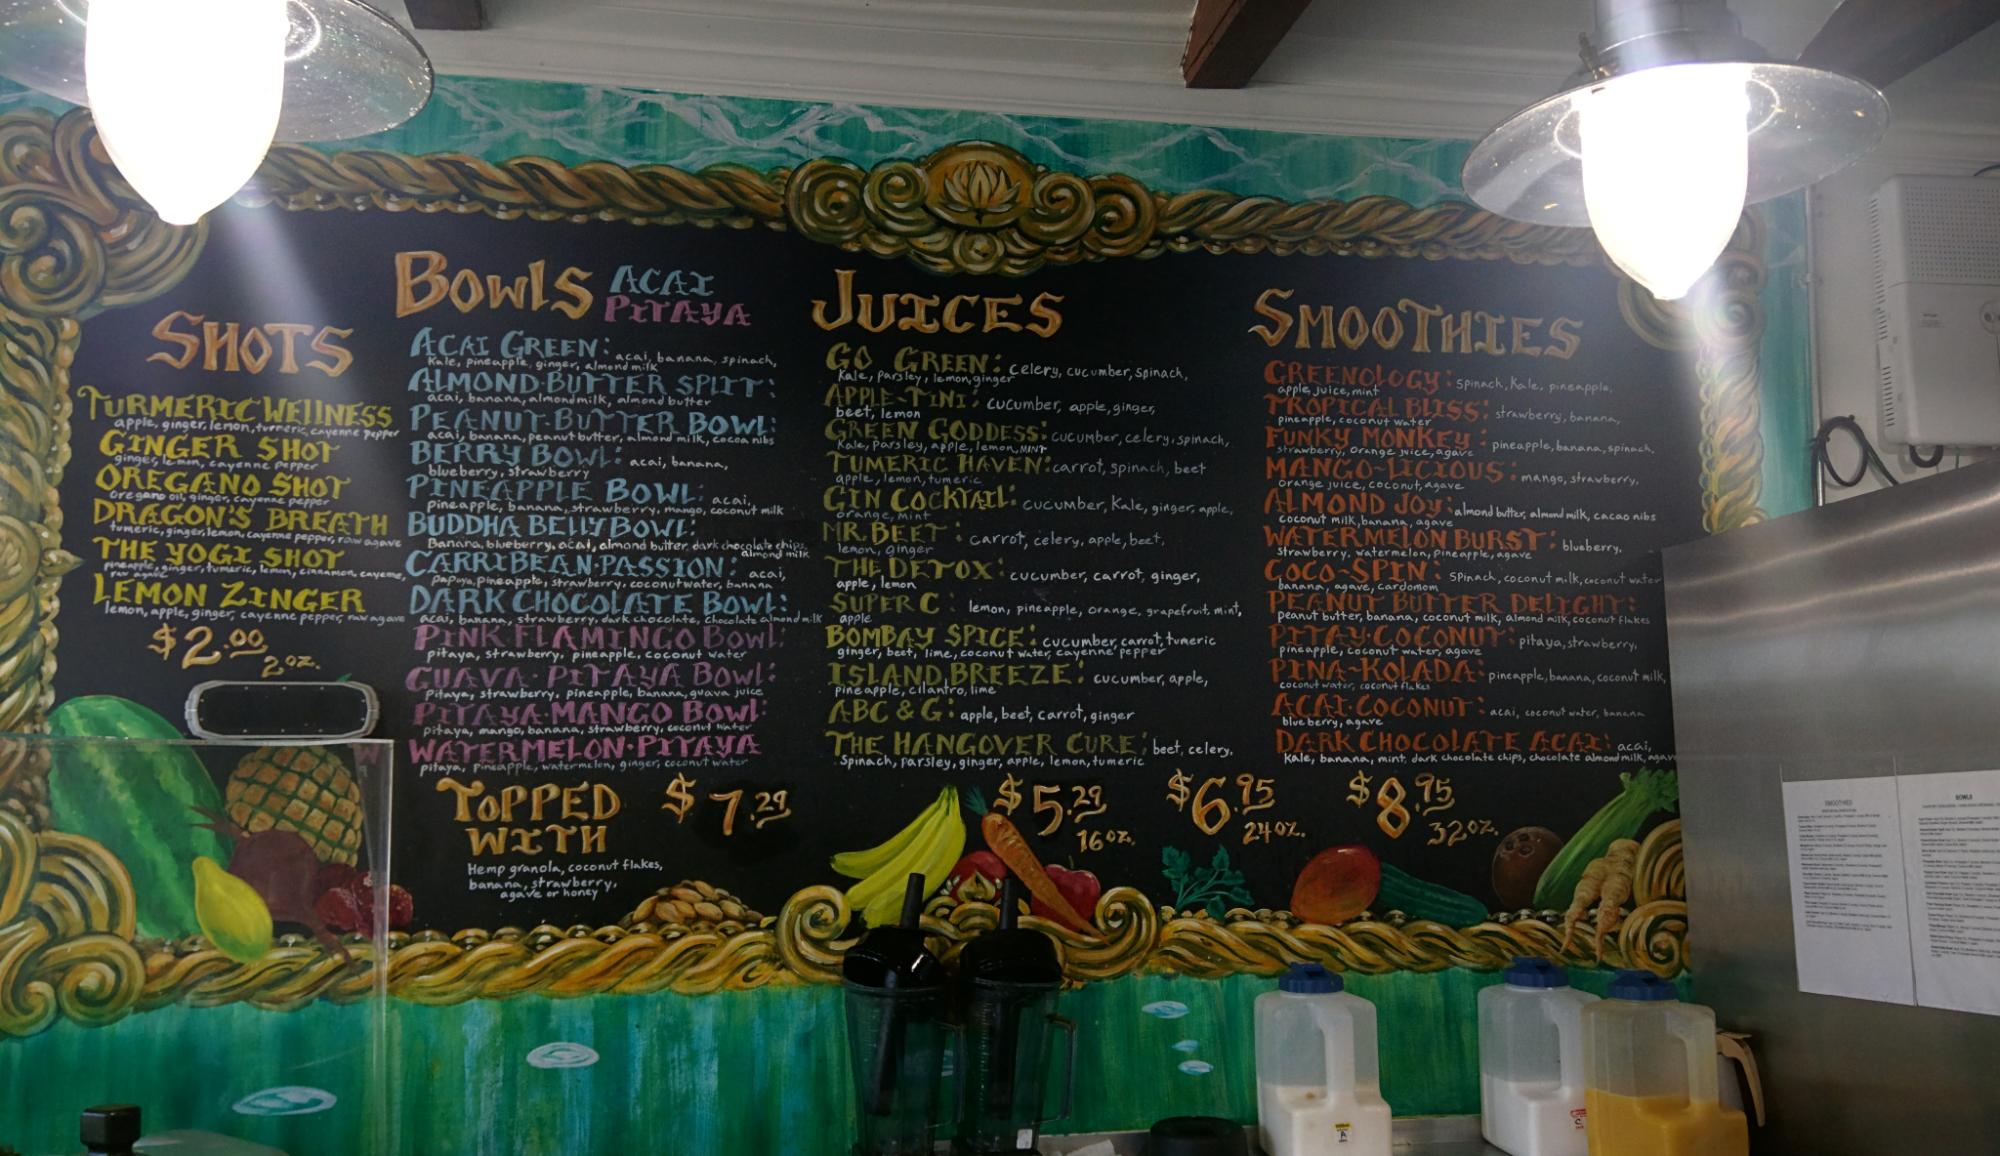 SHOTS
TURMERIC WELLNESS
apple, ginger, lemon, turmeric, cayenne pepper
GINGER SHOT
ginger, lemon, cayenne pepper
OREGANO SHOT
oregano oil, ginger, cayenne pepper
DRAGON'S BREATH
tumeric, ginger, lemon, cayenne pepper, raw agave
THE YOGI SHOT
pineapple, ginger, tumeric, lemon, cinnamon, cayenne,
raw agave
LEMON ZINGER
lemon, apple, ginger, cayenne pepper, raw agave
$2.00
2 oz.
BOWLS ACAI
PITAYA
ACAI GREEN: acai, banana, spinach,
Kale, pineapple, ginger, almond milk
ALMOND-BUTTER SPLIT:
acai, banana, almond milk, almond butter
PEANUT-BUTTER BOWL:
acai, banana, peanut butter, almond milk, cocoa nibs
BERRY BOWL: acai, banana,
blueberry, strawberry
PINEAPPLE BOWL: acai,
pineapple, banana, strawberry, mango, coconut milk
BUDDHA BELLY BOWL:
Banana, blueberry, acai, almond butter, dark chocolate chips,
almond milk
CARRIBEAN-PASSION: acai,
papaya, pineapple, strawberry, coconut water, banana
DARK CHOCOLATE BOWL:
acai, banana, strawberry, dark chocolate, chocolate almond milk
PINK FLAMINGO BOWL:
pitaya, strawberry, pineapple, coconut water
GUAVA-PITAYA BOWL:
pitaya, strawberry, pineapple, banana, guava juice
PITAYA-MANGO BOWL:
pitaya, mango, banana, strawberry, coconut water
WATERMELON-PITAYA
pitaya, pineapple, watermelon, ginger, coconut water
TOPPED
WITH
$7.29
Hemp granola, coconut flakes,
banana, strawberry,
agave or honey
JUICES
GO GREEN: Celery, cucumber, spinach,
Kale, parsley, lemon, ginger
APPLE-TINI: cucumber, apple, ginger,
beet, lemon
GREEN GODDESS: cucumber, celery, spinach,
Kale, parsley, apple, lemon, MINT
TUMERIC HAVEN: carrot, spinach, beet
apple, lemon, tumeric
GIN COCKTAIL: cucumber, Kale, ginger, apple,
orange, mint
MR. BEET: carrot, celery, apple, beet,
lemon, ginger
THE DETOX: cucumber, carrot, ginger,
apple, lemon
SUPER C: lemon, pineapple, orange, grapefruit, mint,
apple
BOMBAY SPICE: cucumber, carrot, tumeric
ginger, beet, lime, coconut water, cayenne pepper
ISLAND BREEZE: cucumber, apple,
pineapple, cilantro, lime
ABC & G: apple, beet, carrot, ginger
THE HANGOVER CURE: beet, celery,
spinach, parsley, ginger, apple, lemon, tumeric
$5.29
16 oz.
$6.95
24 oz.
$8.95
32 oz.
SMOOTHIES
GREENOLOGY: spinach, Kale, pineapple,
apple juice, mint
TROPICAL BLISS: strawberry, banana,
pineapple, coconut water
FUNKY MONKEY: pineapple, banana, spinach,
strawberry, orange juice, agave
MANGO-LICIOUS: mango, strawberry,
orange juice, coconut, agave
ALMOND JOY: almond butter, almond milk, cacao nibs
coconut milk, banana, agave
WATERMELON BURST: blueberry,
strawberry, watermelon, pineapple, agave
COCO-SPIN: Spinach, coconut milk, coconut water
banana, agave, cardomom
PEANUT BUTTER DELIGHT:
peanut butter, banana, coconut milk, almond milk, coconut flakes
PITAY-COCONUT: pitaya, strawberry,
pineapple, coconut water, agave
PINA-KOLADA: pineapple, banana, coconut milk,
coconut water, coconut flakes
ACAI-COCONUT: acai, coconut water, banana
blueberry, agave
DARK CHOCOLATE ACAI: acai,
Kale, banana, mint, dark chocolate chips, chocolate almond milk, agave
SMOOTHIES
BOWLS